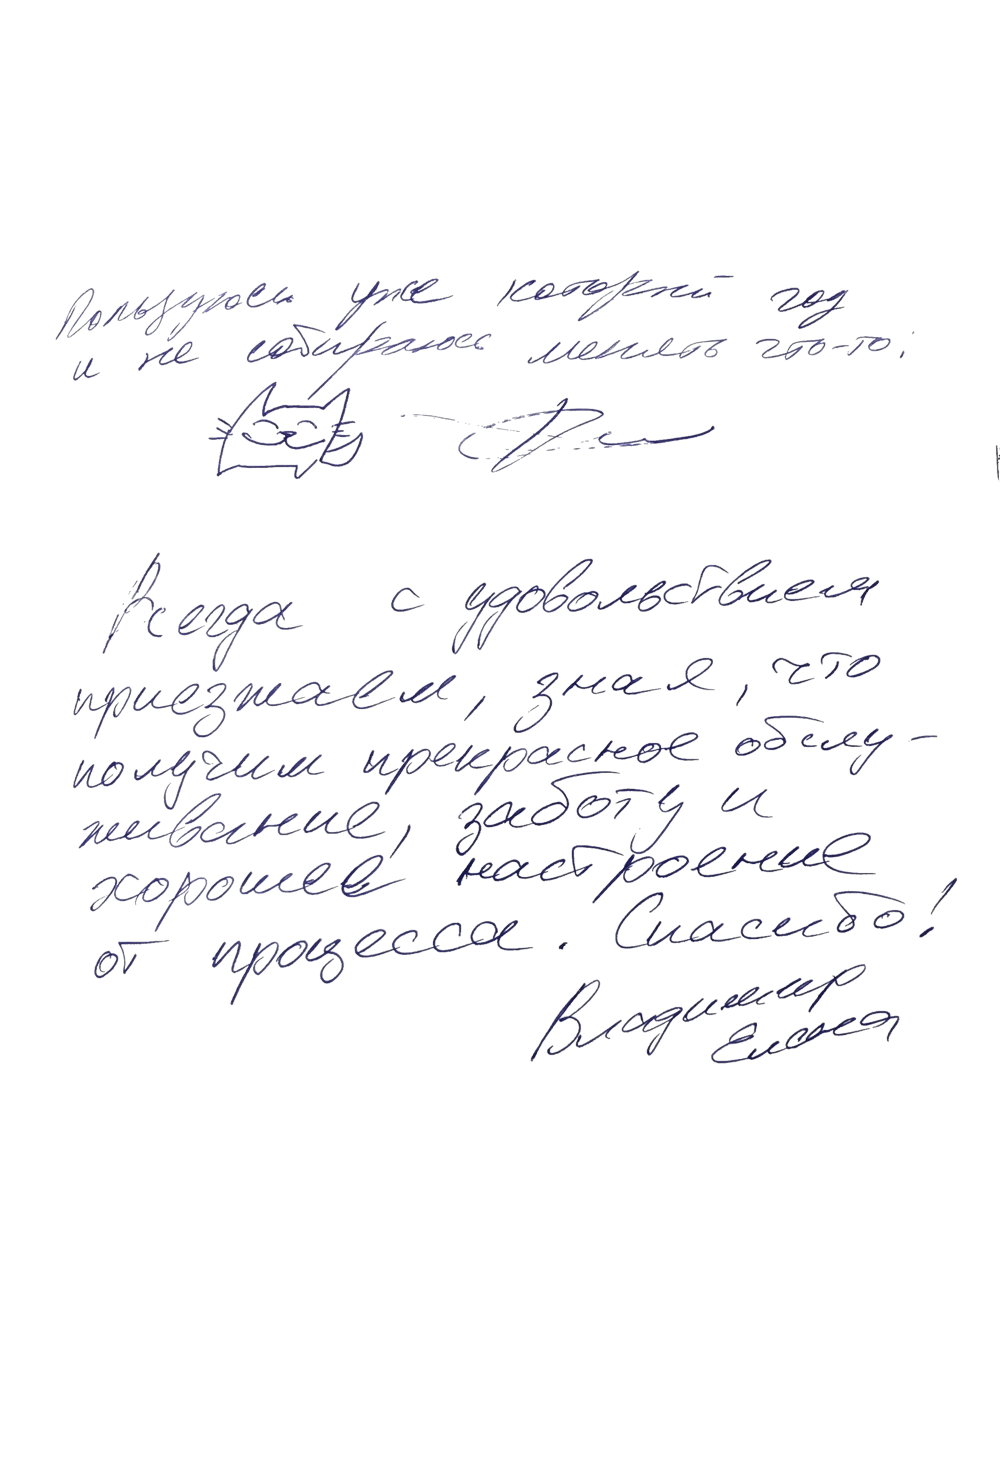 Пользуюсь уже который год
и не собираюсь менять что-то.
Всегда с удовольствием
приезжаем, зная, что
получим прекрасное обслу-
живание, заботу и
хорошее настроение
от процесса. Спасибо!
Владимир
Елена